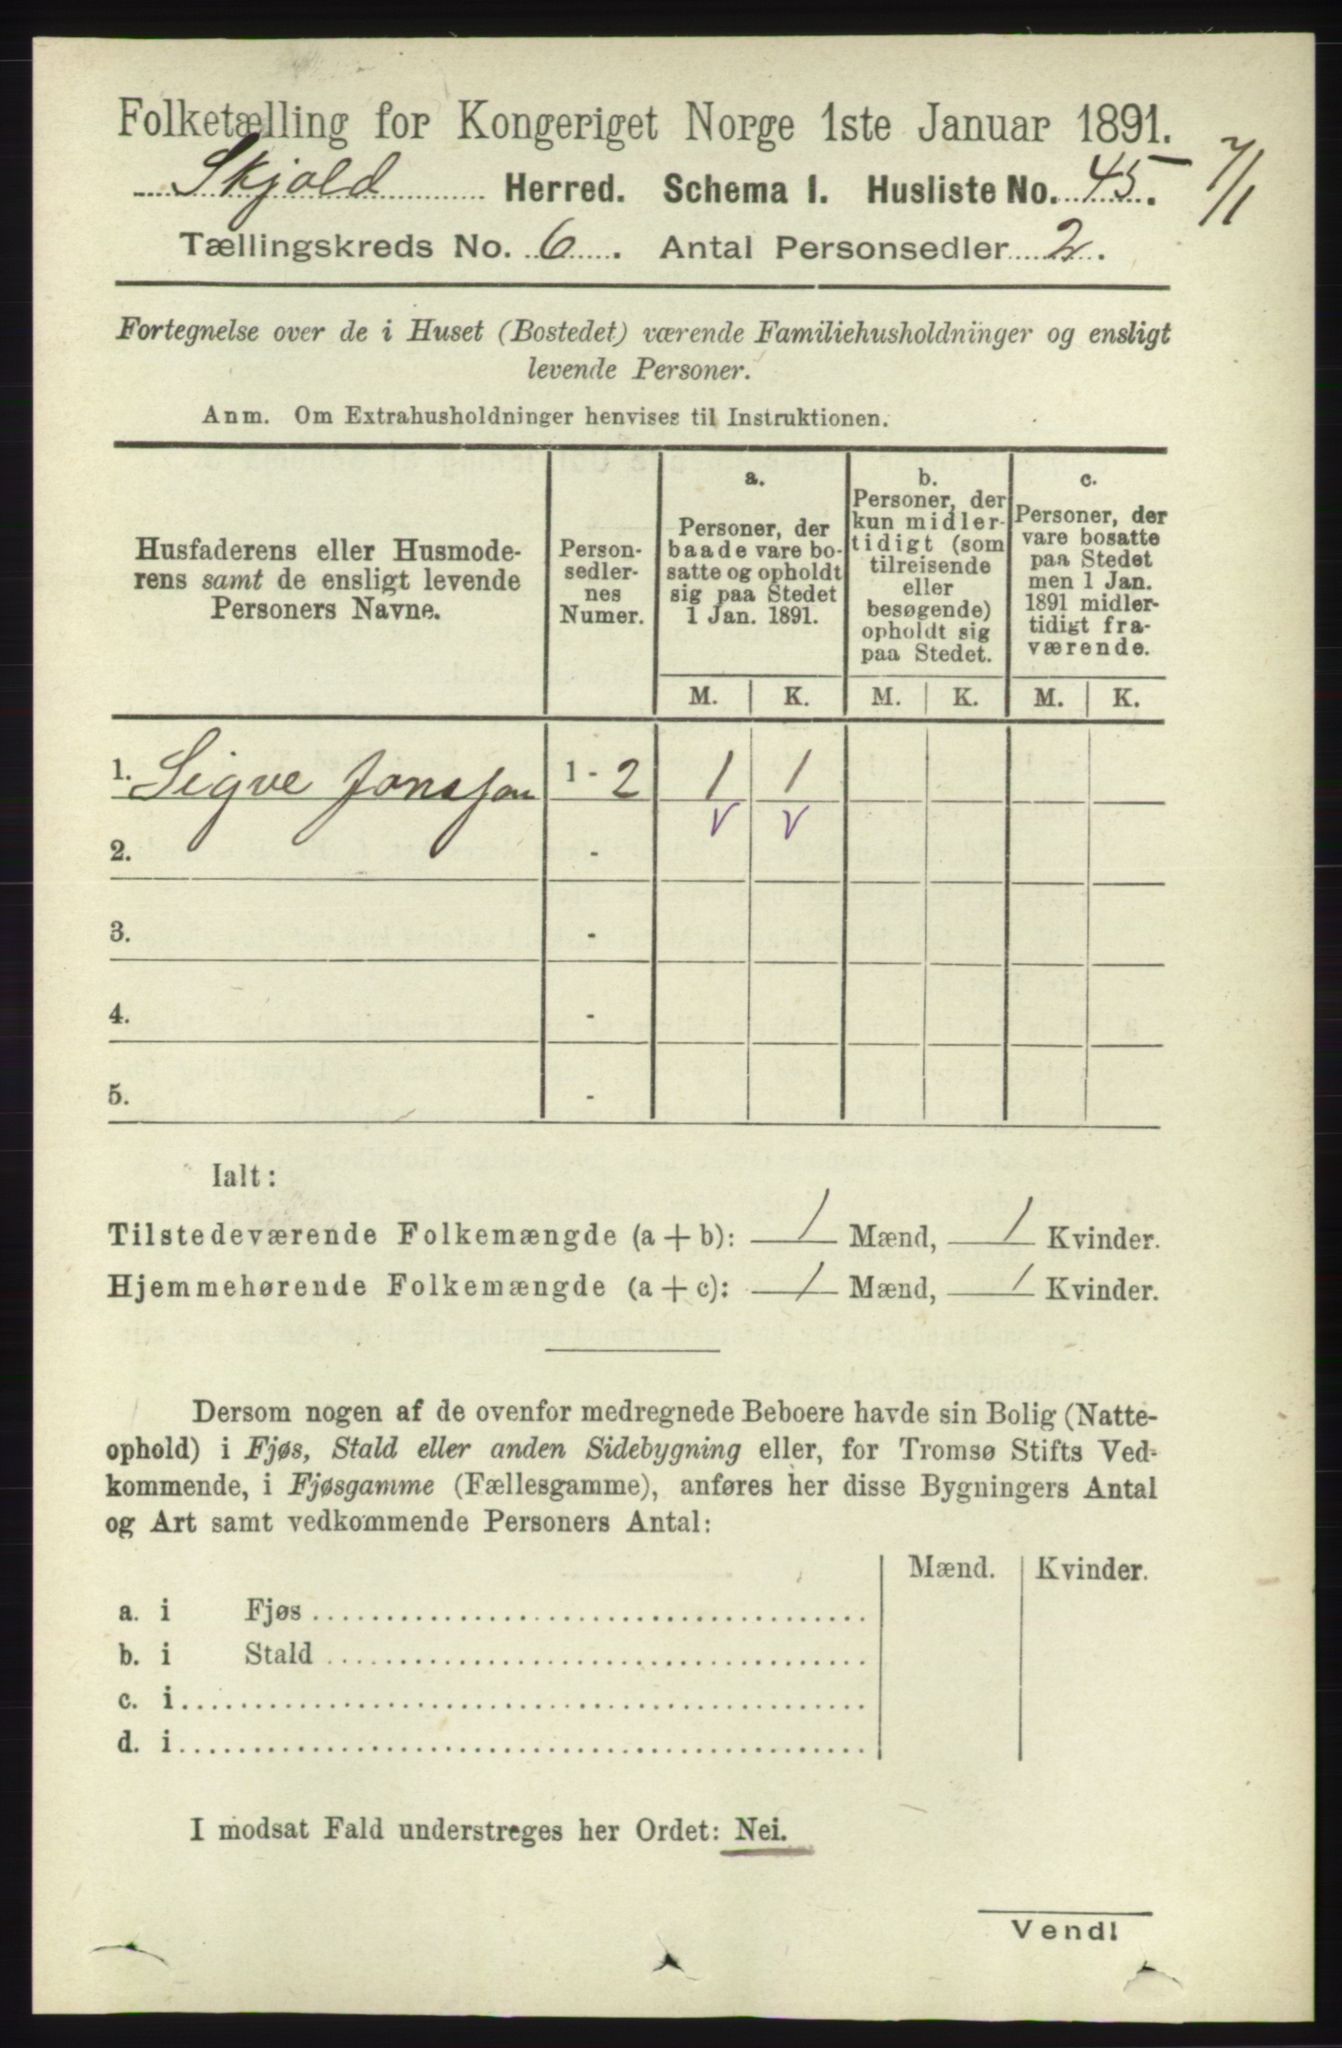 Folketælling for Kongeriget Norge 1ste Januar 1891.
Skjold Herred. Schema I. Husliste No. 45. 7/1
Tællingskreds No. 6. Antal Personsedler 2.
Fortegnelse over de i Huset (Bostedet) værende Familiehusholdninger og ensligt
levende Personer.
Anm. Om Extrahusholdninger henvises til Instruktionen.
Husfaderens eller Husmode-
rens samt de ensligt levende
Personers Navne.
Person-
sedler-
nes
Numer.
a.
Personer, der
baade vare bo-
satte og opholdt
sig paa Stedet
1 Jan. 1891.
b.
Personer, der
kun midler-
tidigt (som
tilreisende
eller
besøgende)
opholdt sig
paa Stedet.
c.
Personer, der
vare bosatte
paa Stedet
men 1 Jan.
1891 midler-
tidigt fra-
værende.
M. K. M. K. M. K.
1. Sigve Jonsson 1 - 2 1 1
2. -
3. -
4. -
5. -
Ialt:
Tilstedeværende Folkemængde (a + b): 1 Mænd, 1 Kvinder.
Hjemmehørende Folkemængde (a + c): 1 Mænd, 1 Kvinder.
Dersom nogen af de ovenfor medregnede Beboere havde sin Bolig (Natte-
ophold) i Fjøs, Stald eller anden Sidebygning eller, for Tromsø Stifts Ved-
kommende, i Fjøsgamme (Fællesgamme), anføres her disse Bygningers Antal
og Art samt vedkommende Personers Antal:
Mænd. Kvinder.
a. i Fjøs
b. i Stald
c. i
d. i
I modsat Fald understreges her Ordet: Nei.
Vend!